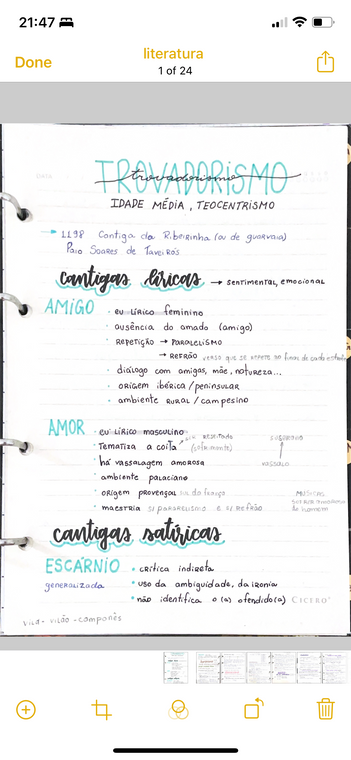 21:47
Done
literatura
1 of 24
TROVADORISMO
trovadorismo
IDADE MÉDIA, TEOCENTRISMO
1198 Cantiga da Ribeirinha (ou de guarvaia)
Paio Soares de Taveirós
cantigas líricas → SENTIMENTAL, EMOCIONAL
AMIGO
• eu lírico feminino
• ausência do amado (amigo)
• REPETIÇÃO → PARALELISMO
→ REFRÃO verso que se repete ao final de cada estrofe
• diálogo com amigas, mãe, natureza...
• origem ibérica/peninsular
• ambiente rural/campesino
AMOR
• eu lírico masculino
• Tematiza a coita (sofrimento)
• há vassalagem amorosa
SUSERANO
VASSALO
• ambiente palaciano
• origem provençal sul da frança
• maestria s/ paralelismo e s/ refrão
cantigas satíricas
ESCÁRNIO
generalizada
• crítica indireta
• uso da ambiguidade, da ironia
• não identifica o(a) ofendido(a)
vila - vilão - camponês